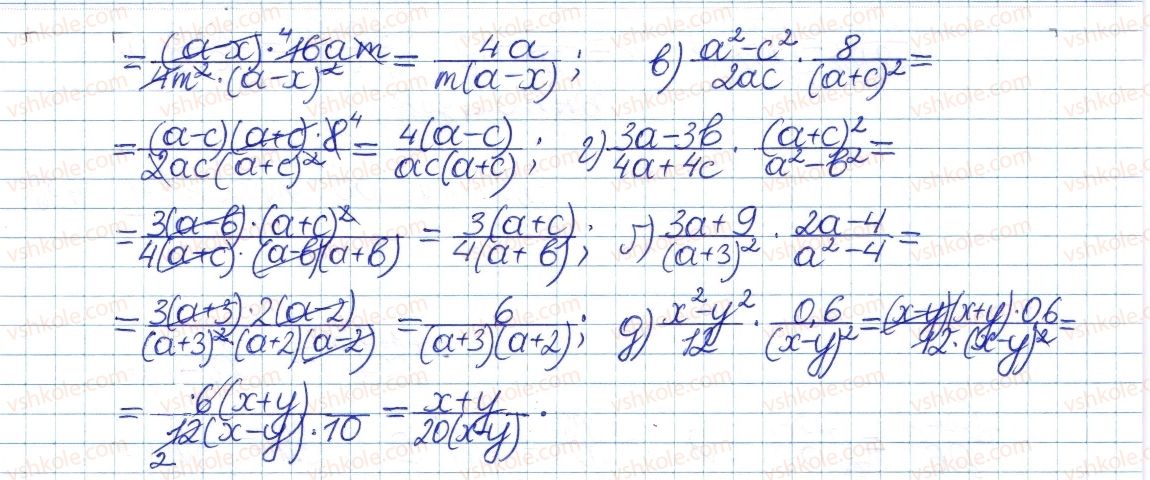 = (a-x)·⁴16am / 4m²·(a-x)² = 4a / m(a-x) ; в) a²-c² / 2ac · 8 / (a+c)² =
= (a-c)(a+c)·8⁴ / 2ac(a+c)² = 4(a-c) / ac(a+c) ; г) 3a-3b / 4a+4c · (a+c)² / a²-b² =
= 3(a-b)·(a+c)² / 4(a+c)·(a-b)(a+b) = 3(a+c) / 4(a+b) ; ґ) 3a+9 / (a+3)² · 2a-4 / a²-4 =
= 3(a+3)·2(a-2) / (a+3)²·(a+2)(a-2) = 6 / (a+3)(a+2) ; д) x²-y² / 12 · 0,6 / (x-y)² = (x-y)(x+y)·0,6 / 12·(x-y)² =
= 6(x+y) / 12₂(x-y)·10 = x+y / 20(x-y) .